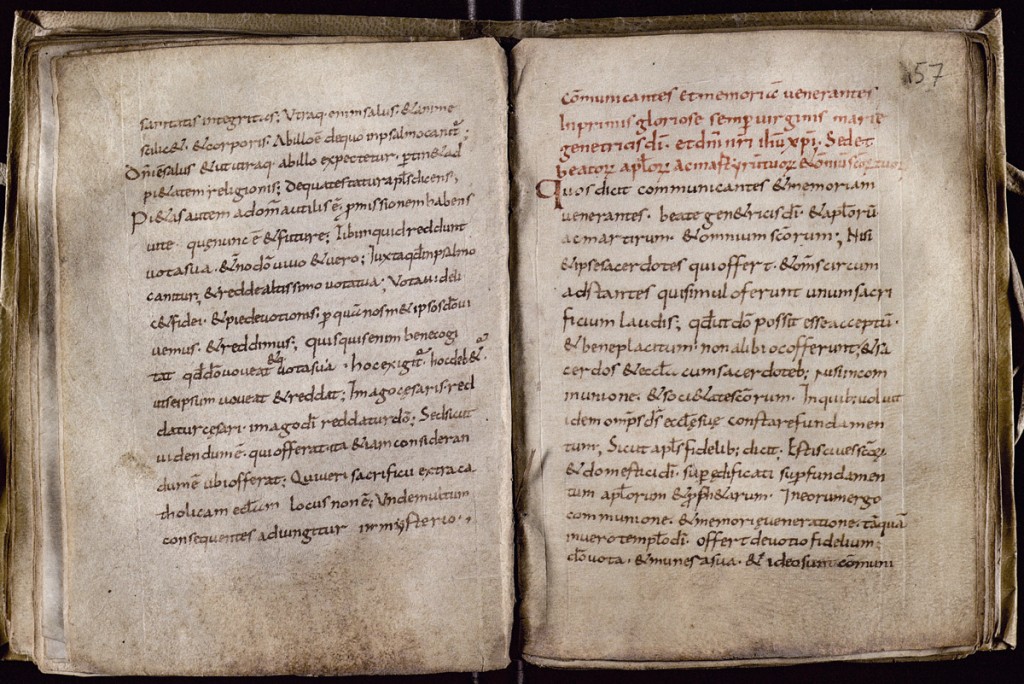 sanitatis integritas; Utraq· enim salus· & anime
salic& & corporis; Ab illo ē de quo in psalmo cantat̄;
Dn̄i ē salus & ut utraq· ab illo expectetur· ꝑtin& ad
pi&atem religionis; De qua testatur apl̄s dicens;
Pi&as autem ad om̄a utilis ē· ꝓmissionem habens
uite· que nunc ē & future; Tibi inquid reddunt
uota sua· æt̄no dō uiuo & uero; Iuxta qđ in psalmo
canitur, & redde altissimo uota tua; Vota uideli
c& fidei· & pie deuotionis· ꝑ quā nosm& ipsos dō uo
uemus· & reddimus; quisquis enim bene cogi
tat qđ dō uoueat & q· uota sua· hoc exigit̄· hoc deb&·
ut se ipsum uoueat & reddat; Imago cesaris red
datur cesari· imago dī reddatur dō; Sed sicut
uidendum ē· qui offerat· ita & iam consideran
dum ē ubi offerat; Quia ueri sacrificii extra ca
tholicam ecl̄am locus non ē; Unde multum
consequenter adiungitur in mysterio;
157
Cōmunicantes et memoriā uenerantes
In primis gloriose semꝑ uirginis marie
genetricis dī· et dn̄i nr̄i ihū xp̄i. Sed et
beatoꝝ apl̄oꝝ ac martyrū tuoꝝ & omiū sc̄oꝝ tuoꝝ
Quos dicit communicantes & memoriam
uenerantes· beate gen&ricis dī· & apl̄orū
ac martirum· & omnium sc̄orum; Nisi
& ipse sacerdotes qui offert· & om̄s circum
adstantes qui simul oferunt unum sacri
ficium laudis; qđ ut dō possit esse acceptū·
& beneplacitum· non alibi oc offerunt; & sa
cerdos & ecc̄la cum sacerdoteb; nisi in com
munione· & soci&ate sc̄orum· In quib; uoluit
idem omp̄s dī ecclesie constare fundamen
tum; Sicut apl̄s fidelib; dicit· Estis ciues sc̄oꝝ
& domestici dī· suꝑ edificati suꝑ fundamen
tum apl̄orum & proph&arum· In eorum ergo
communione· & memorie ueneratione· tāquā
in uero templo dī· offert deuotio fidelium·
dō uota· & munera sua· & ideo sunt cōmuni